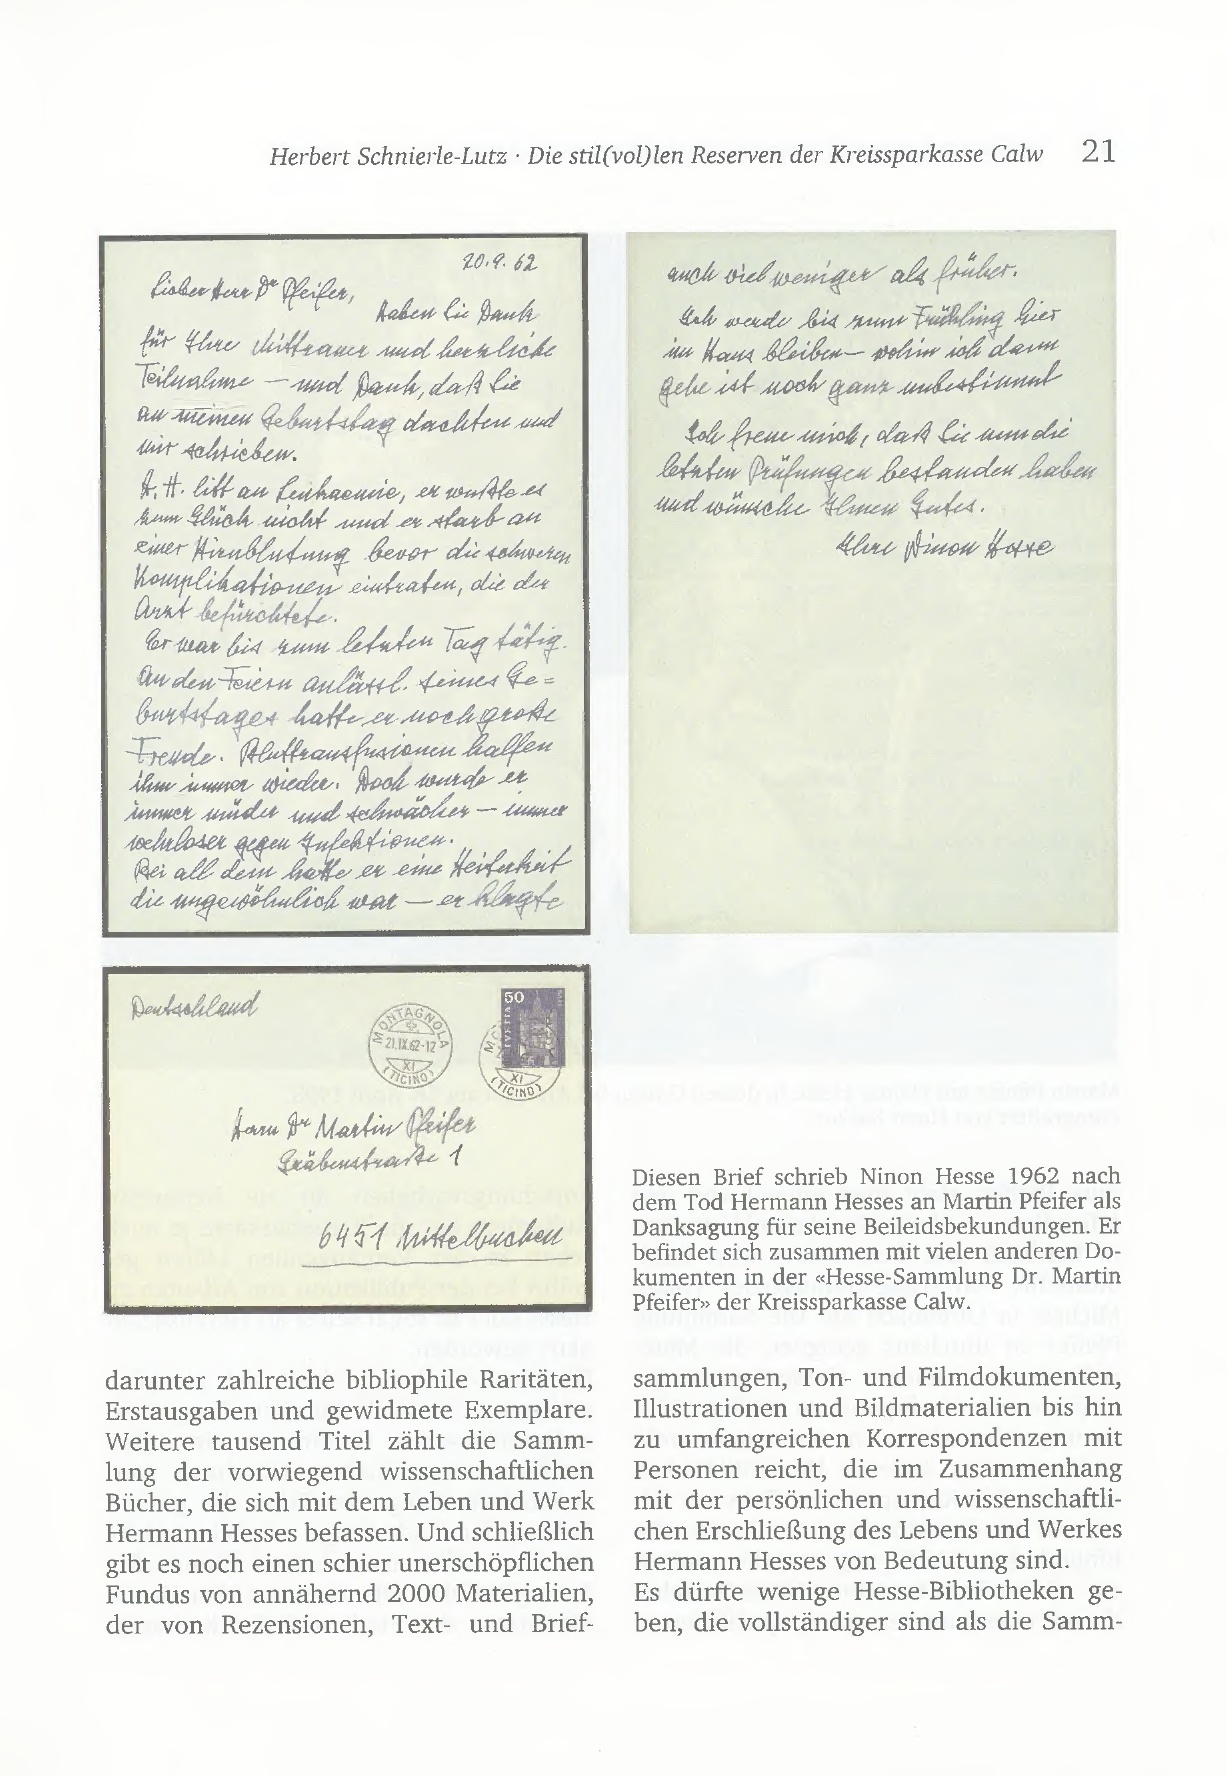 Herbert Schnierle-Lutz · Die stil(vol)len Reserven der Kreissparkasse Calw 21
20.9.62
Lieber Herr Dr Pfeifer,
Haben Sie Dank
für Ihre Mittrauer und herzliche
Teilnahme — und Dank, daß Sie
an meinen Geburtstag dachten und
mir schrieben.
H. H. litt an Leukaemie, er wußte es
zum Glück nicht und er starb an
einer Hirnblutung bevor die schweren
Komplikationen eintraten, die der
Arzt befürchtete.
Er war bis zum letzten Tag tätig.
An den Feiern anlässl. seines Ge=
burtstages hatte er noch große
Freude. Bluttransfusionen halfen
ihm immer wieder. Doch wurde er
immer müder und schwächer — immer
wehrloser gegen Infektionen.
Bei all dem hatte er eine Heiterkeit
die ungewöhnlich war — er klagte
auch viel weniger als früher.
Ich werde bis zum Frühling hier
im Haus bleiben — wohin ich dann
gehe ist noch ganz unbestimmt
Ich freue mich, daß Sie nun die
letzten Prüfungen bestanden haben
und wünsche Ihnen Gutes.
Ihre Ninon Hesse
Deutschland
MONTAGNOLA
21.IX.62-12
XI
(TICINO)
50
HELVETIA
XI
(TICINO)
Herrn Dr Martin Pfeifer
Gräbenstraße 1
6451 Mittelbuchen
Diesen Brief schrieb Ninon Hesse 1962 nach
dem Tod Hermann Hesses an Martin Pfeifer als
Danksagung für seine Beileidsbekundungen. Er
befindet sich zusammen mit vielen anderen Do-
kumenten in der «Hesse-Sammlung Dr. Martin
Pfeifer» der Kreissparkasse Calw.
darunter zahlreiche bibliophile Raritäten,
Erstausgaben und gewidmete Exemplare.
Weitere tausend Titel zählt die Samm-
lung der vorwiegend wissenschaftlichen
Bücher, die sich mit dem Leben und Werk
Hermann Hesses befassen. Und schließlich
gibt es noch einen schier unerschöpflichen
Fundus von annähernd 2000 Materialien,
der von Rezensionen, Text- und Brief-
sammlungen, Ton- und Filmdokumenten,
Illustrationen und Bildmaterialien bis hin
zu umfangreichen Korrespondenzen mit
Personen reicht, die im Zusammenhang
mit der persönlichen und wissenschaftli-
chen Erschließung des Lebens und Werkes
Hermann Hesses von Bedeutung sind.
Es dürfte wenige Hesse-Bibliotheken ge-
ben, die vollständiger sind als die Samm-